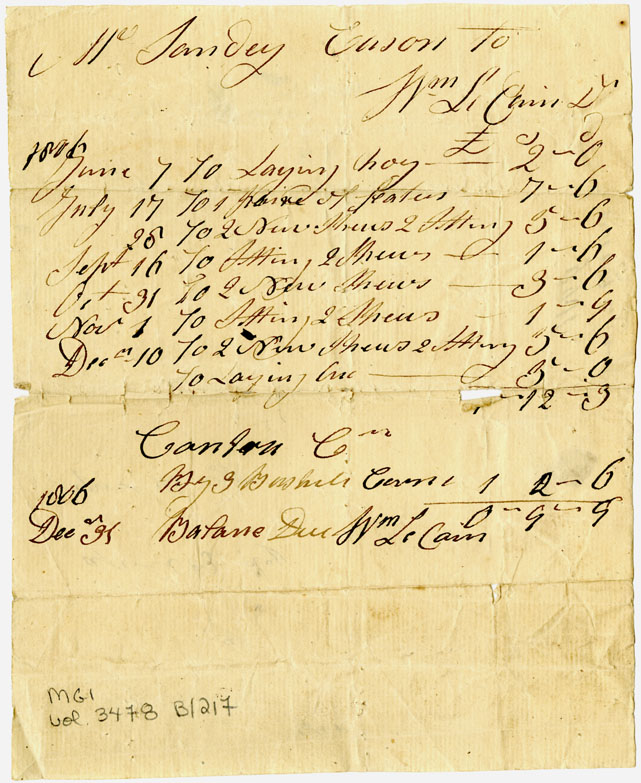 Mr Sandey Eason To
Wm Le Cain Dr
1806 £ s d
June 7 To Laying hoy 2 - 0
July 17 To 1 Paire of 7 - 6
28 To 2 New Shews 2 Stting 5 - 6
Sept 16 To Stting 2 Shews 1 - 6
Oct 31 To 2 New Shews 3 - 6
Nov 1 To Stting 2 Shews 1 - 9
Decm 10 To 2 New Shews 2 Stting 5 - 6
To Laying 5 - 0
1 - 12 - 3
Contra Cr
1806 By 3 Bushils Corne 1 2 - 6
Decm 31 Balane Due 0 - 9 - 9
Wm Le Cain
MG1
vol. 3478 B/217